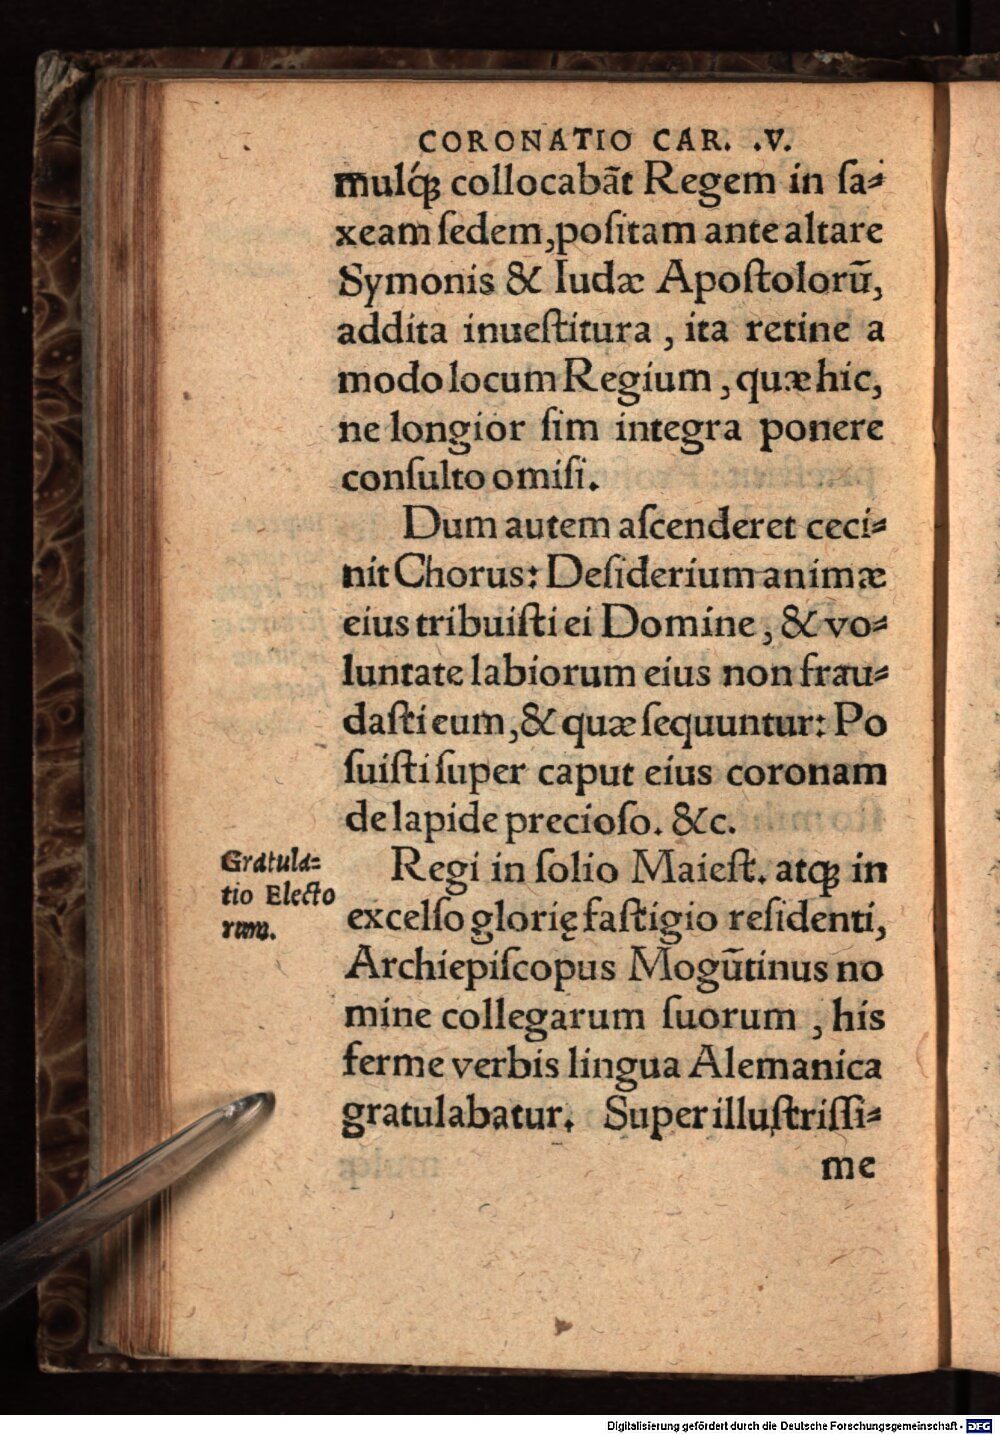 CORONATIO CAR. .V.
mulq́ꝫ collocabãt Regem in ſa⸗
xeam ſedem, poſitam ante altare
Symonis & Iudæ Apoſtolorũ,
addita inueſtitura, ita retine a
modo locum Regium, quæ hic,
ne longior ſim integra ponere
conſulto omiſi.
Dum autem aſcenderet ceci⸗
nit Chorus: Deſiderium animæ
eius tribuiſti ei Domine, & vo⸗
luntate labiorum eius non frau⸗
daſti eum, & quæ ſequuntur: Po
ſuiſti ſuper caput eius coronam
de lapide precioſo. &c.
Gratula⸗
tio Electo
rum.
Regi in ſolio Maieſt. atqꝫ in
excelſo glorię faſtigio reſidenti,
Archiepiſcopus Mogũtinus no
mine collegarum ſuorum, his
ferme verbis lingua Alemanica
gratulabatur. Super illuſtriſſi⸗
me
Digitalisierung gefördert durch die Deutsche Forschungsgemeinschaft - DFG